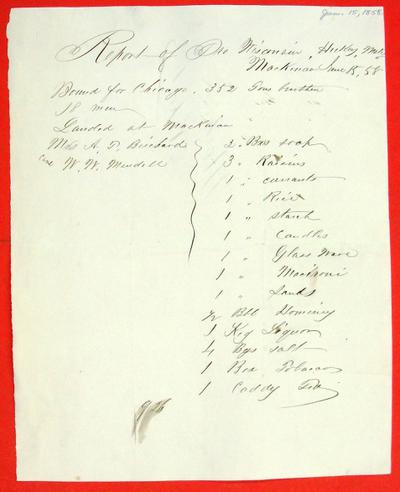 June 15, 1858
Report of Pro Wisconsin Huckley, Master
Mackinac June 15, 58
Bound for Chicago. 352 Tons burthen
18 men
Landed at Mackinac
care W. W. Wendell
2 Bxs soap
3 " Raisins
1 " currants
1 " Rice
1 " starch
1 " candles
1 " Glass Ware
1 " Maccironi
1 "
1/2 Bbl Hominy
1 Keg Liquor
4 Bgs salt
1 Box Tobacco
1 Caddy Tea